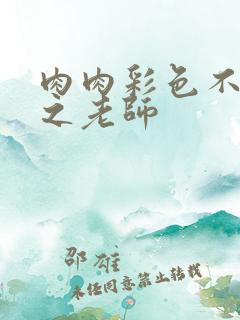 肉肉彩色不
之老師
邵雄
未经同意禁止转载